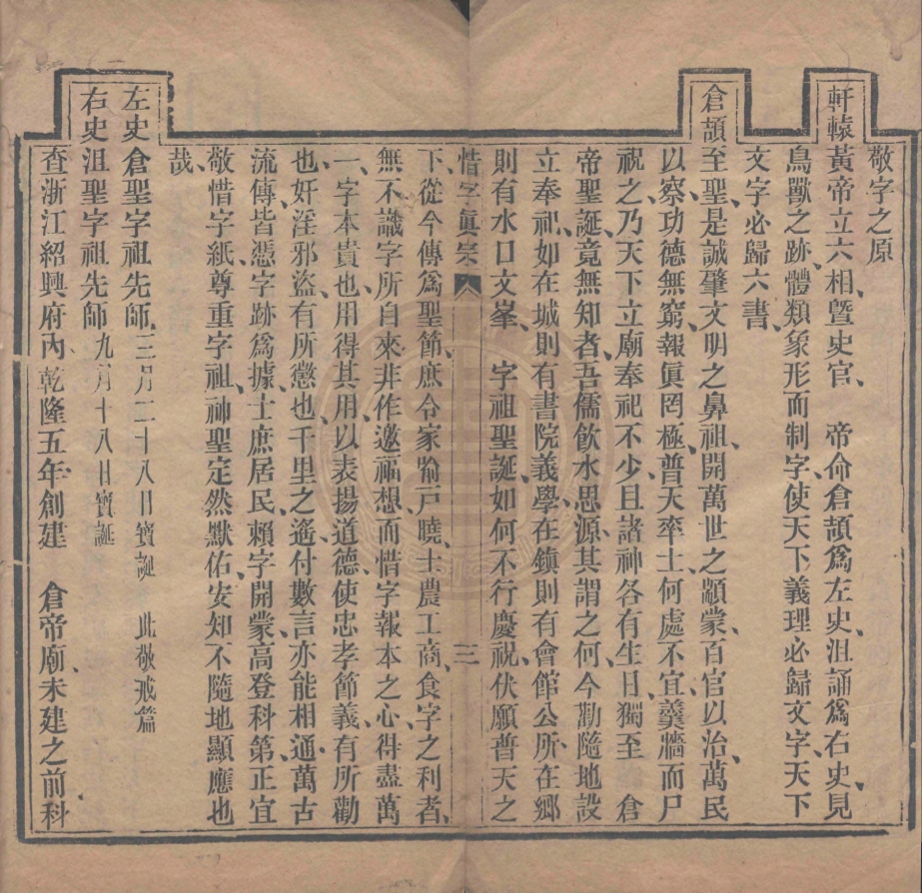 敬字之原
軒轅黃帝立六相、曁史官　帝命倉頡爲左史、沮誦爲右史、見
鳥獸之跡、體類象形而制字、使天下義理必歸文字、天下
文字必歸六書、
倉頡至聖、是誠肇文明之鼻祖、開萬世之顓蒙、百官以治、萬民
以察、功德無窮、報眞罔極、普天率土、何處不宜羹牆而尸
祝之、乃天下立廟奉祀不少、且諸神各有生日、獨至　倉
帝聖誕、竟無知者、吾儒飲水思源、其謂之何、今勸隨地設
立奉祀、如在城則有書院義學、在鎮則有會館公所、在鄉
則有水口文峯、　字祖聖誕、如何不行慶祝、伏願普天之
惜字眞宗　三
下、從今傳爲聖節、庶令家喻戶曉、士農工商、食字之利者、
無不識字所自來、非作邀福想、而惜字報本之心、得盡萬
一、字本貴也、用得其用、以表揚道德、使忠孝節義、有所勸
也、奸淫邪盜、有所懲也、千里之遙、付數言亦能相通、萬古
流傳、皆憑字跡爲據、士庶居民、賴字開蒙、高登科第、正宜
敬惜字紙、尊重字祖、神聖定然默佑、安知不隨地顯應也
哉、
左史倉聖字祖先師、三月二十八日寶誕　此敬戒篇
右史沮聖字祖先師　九月十八日寶誕
查浙江紹興府內、乾隆五年創建　倉帝廟、未建之前、科